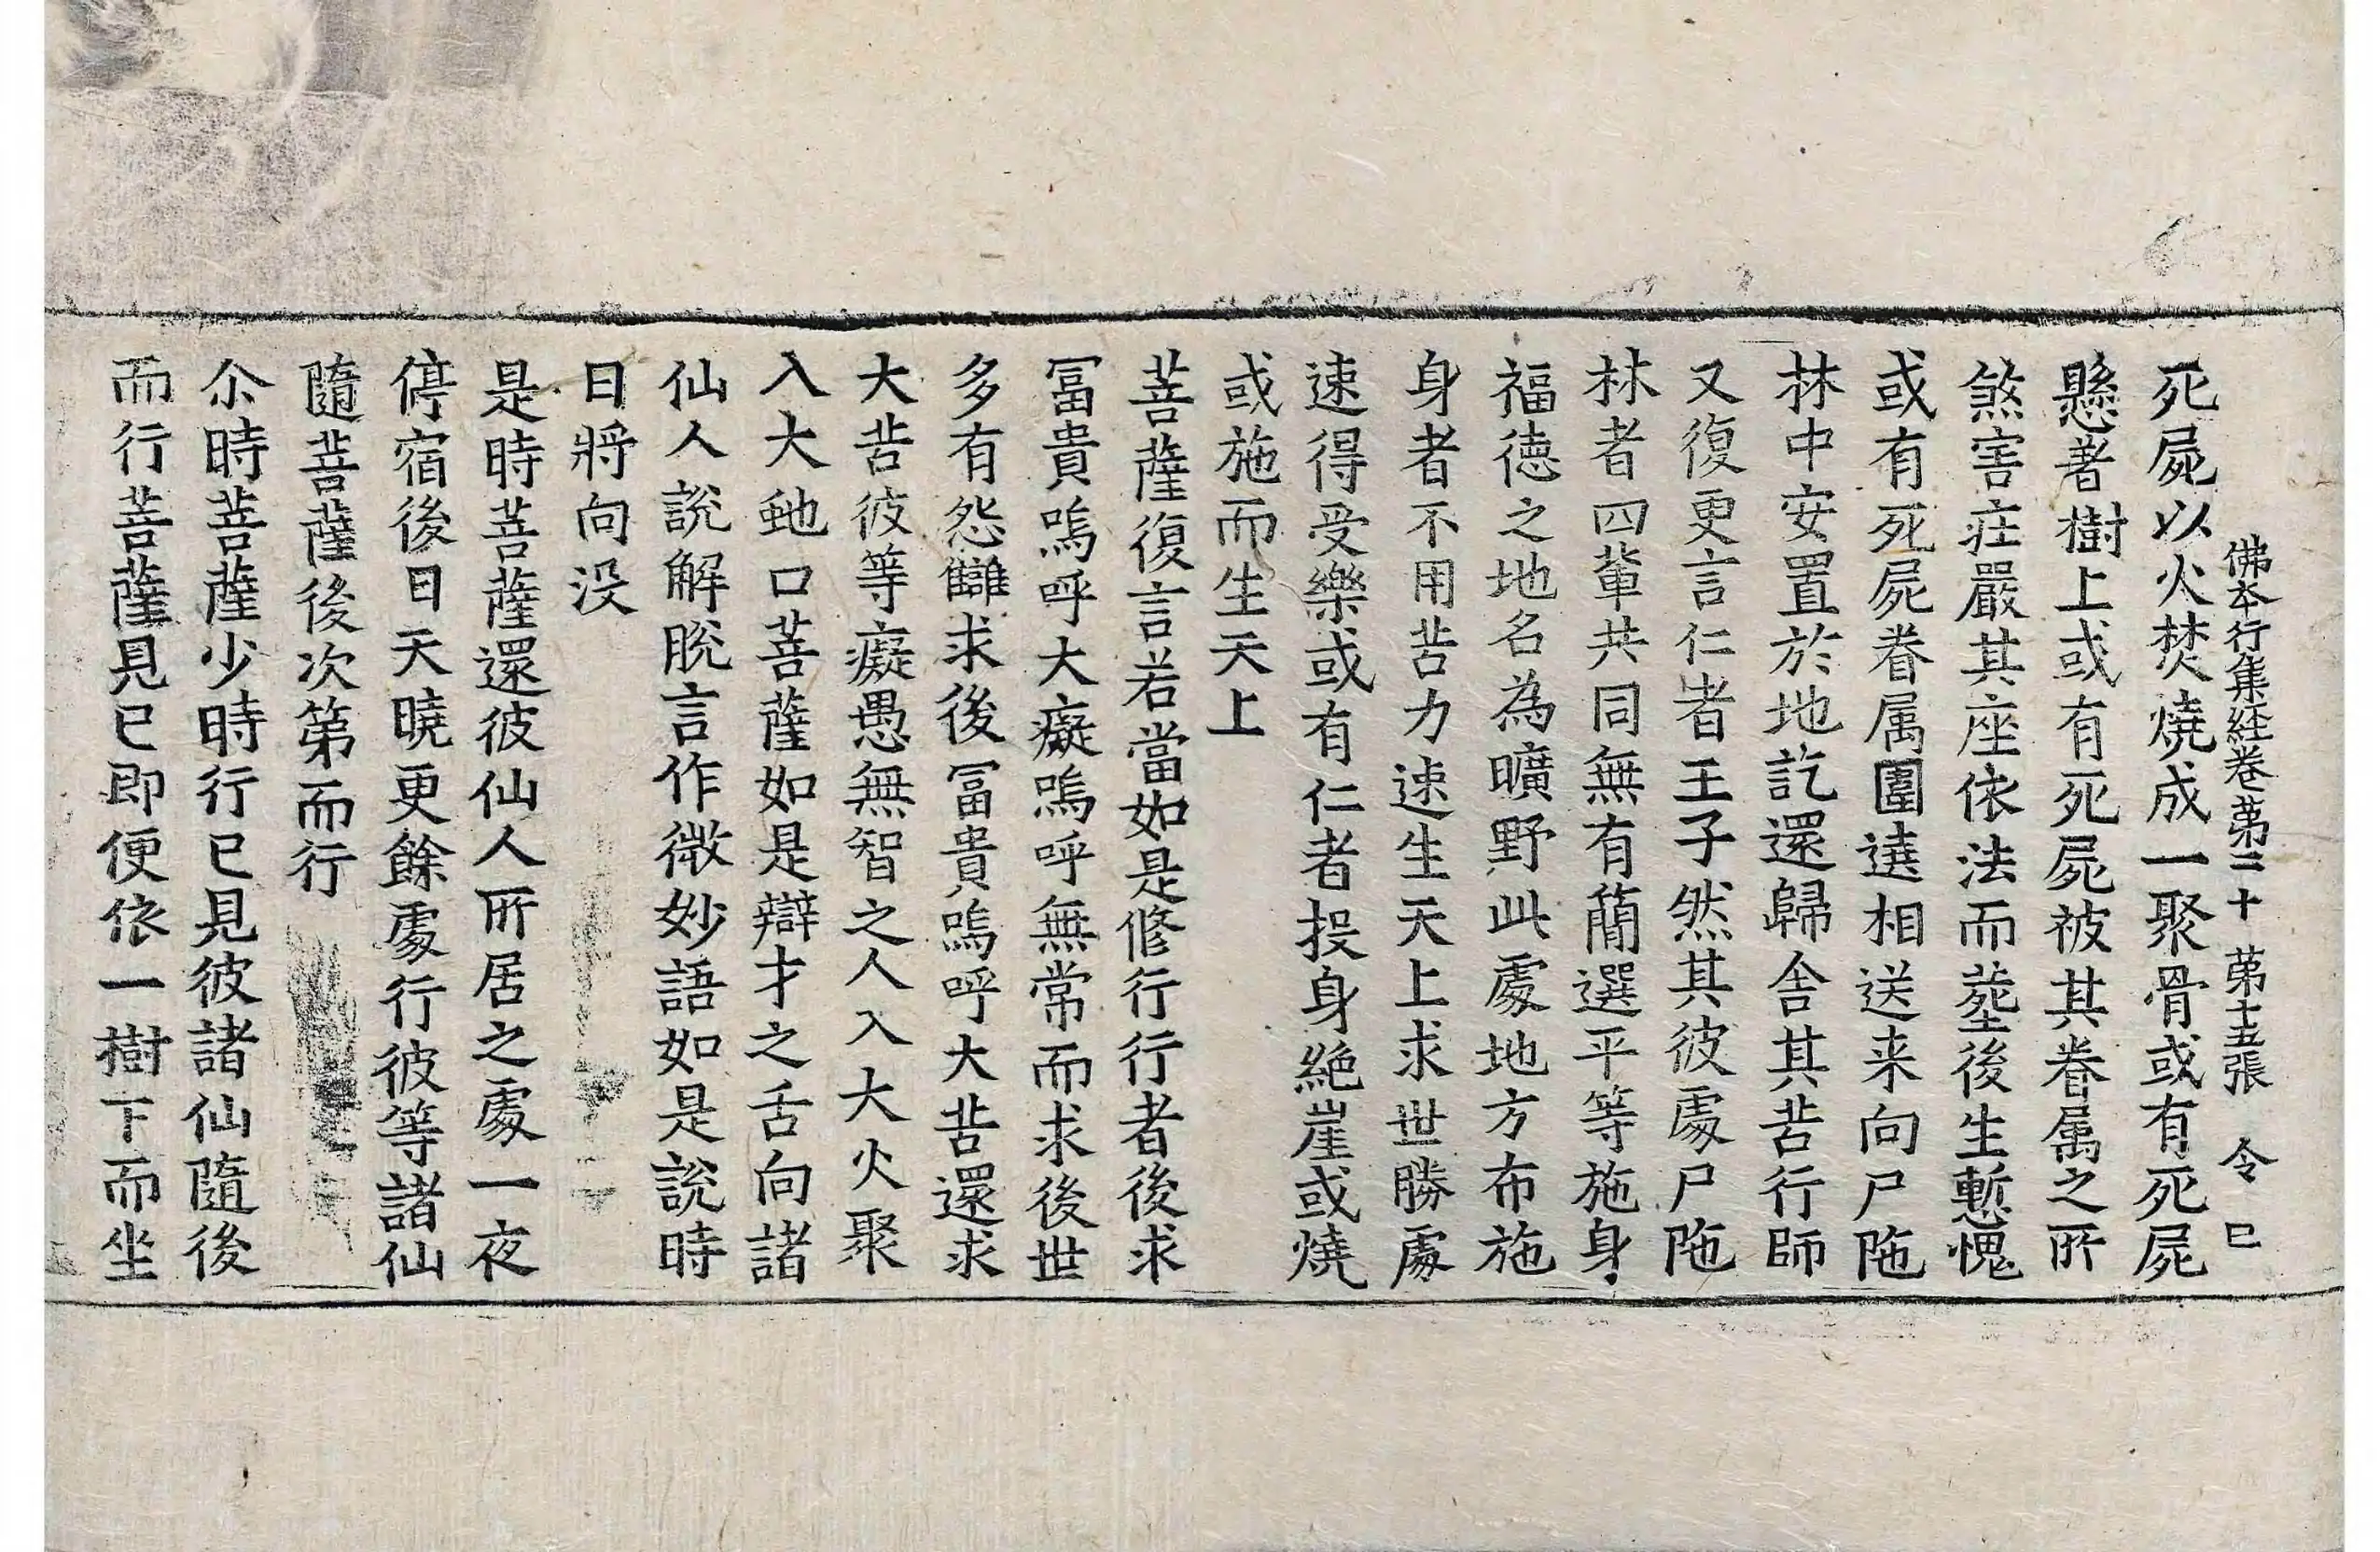 佛本行集経巻苐二十　苐十五張　令　已
死屍以火焚燒成一聚骨或有死屍
懸著樹上或有死屍被其眷属之所
煞害莊嚴其座依法而塟後生慙愧
或有死屍眷属圍遶相送来向尸陁
林中安置於地訖還歸舍其苦行師
又復更言仁者王子然其彼處尸陁
林者四輩共同無有簡選平等施身
福德之地名為曠野此處地方布施
身者不用苦力速生天上求世勝處
速得受樂或有仁者投身絶崖或燒
或施而生天上
菩薩復言若當如是修行行者後求
冨貴嗚呼大癡嗚呼無常而求後世
多有怨讎求後冨貴嗚呼大苦還求
大苦彼等癡愚無智之人入大火聚
入大虵口菩薩如是辯才之舌向諸
仙人說解脫言作微妙語如是說時
日將向没
是時菩薩還彼仙人所居之處一夜
停宿後日天曉更餘處行彼等諸仙
隨菩薩後次第而行
尒時菩薩少時行已見彼諸仙隨後
而行菩薩見已即便依一樹下而坐